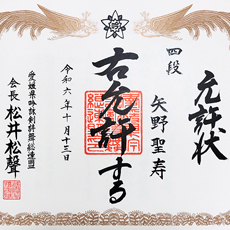 允許状
四段
矢野聖寿
右允許する
令和六年十月十三日
愛媛県吟詠剣詩舞総連盟
会長 松井松聲